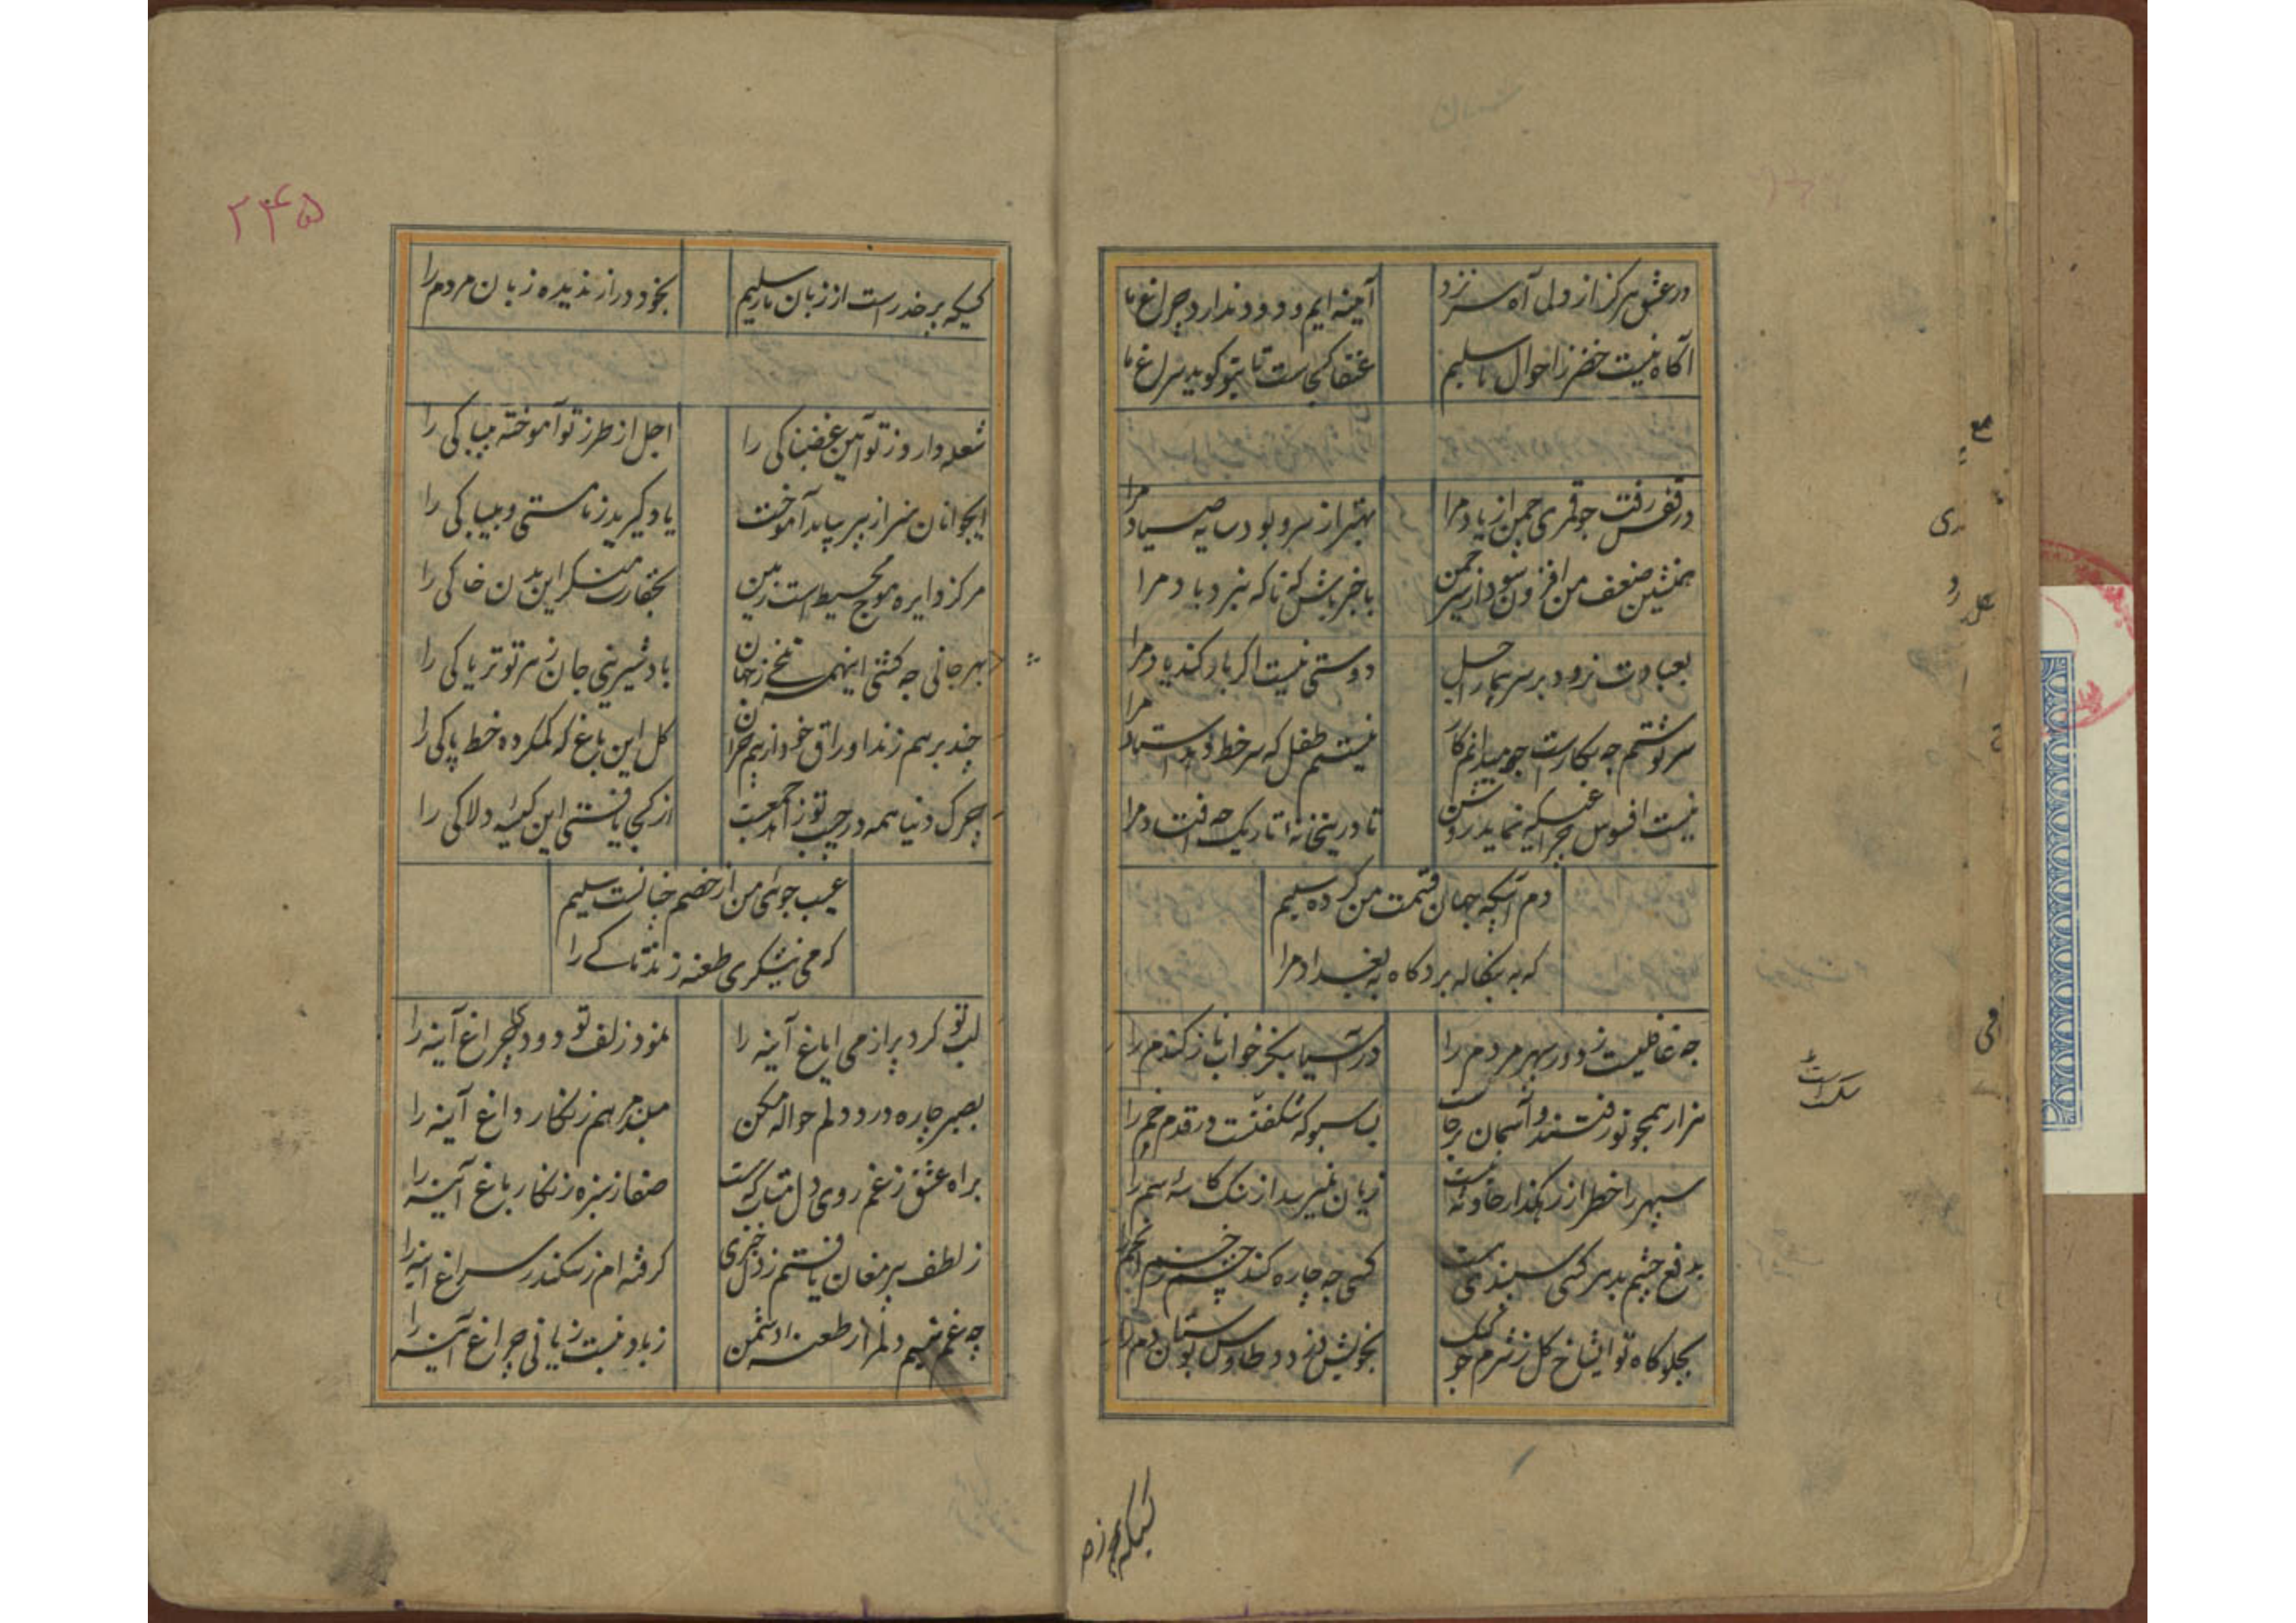 در عشق هرگز از دل ما آه سر نزد
آئینه ایم و دود ندارد چراغ ما
آگاه نیست خضر ز احوال ما سلیم
عنقا کجاست تا بتو کوید سراغ ما
در قفس رفت چو قمری چمن از یاد مرا
بهتر از سرو بود سایه صیاد مرا
همنشین ضعف من افزون شود از سیر چمن
با خبر باش که ناکه نبرد باد مرا
بعیادت نرود بر سر بیمار اجل
دوستی نیست اکر یار کند یاد مرا
سرنوشتم چه بکارست چو میدانم کار
نیستم طفل که سرخط دهد استاد مرا
نیست افسوس چراغیکه نماید روشن
تا درینخانه تاریک چه افتاد مرا
دم آبیکه جهان قسمت من کرده سلیم
که به بنکاله برد کاه به بغداد مرا
چه غافلیست ز دور سپهر مردم را
در آسیا بکجز خواب ناز کندم را
هزار همچو تو رفتند و آسمان برجاست
بسا سبو که شکفتست در قدم خم را
سپهر را خطر از رهکذار حادثه نیست
زیان نمیرسد از سنک کاسه سم را
بدفع چشم بد هر کسی سپندی هست
کسی چه چاره کند چشم زخم انجم را
بجلوه گاه تو ای شاخ کل ز شرم چو کبک
بخویش دزدد طاوس بوستان دم را
کسیکه
۲۴۵
کسیکه بر حذر است از زبان مار سلیم
بخود دراز ندیده زبان مردم را
شعله دارد ز تو آیین غضبناکی را
اجل از طرز تو آموخته بیباکی را
ایجوانان هنر از پیر بباید آموخت
یاد کیرید ز ما مستی و بیباکی را
مرکز دایره موج محیط است زمین
بحقارت منکر این بدن خاکی را
بهر جانی چه کشی اینهمه تلخی ز جهان
باد شیرینی جان زهر تو تریاکی را
چند بر هم زند اوراق خود از بیم خزان
کل این باغ که کم کرده خط پاکی را
چرک دنیا همه در جیب تو زاهد جمعست
از کجا یافتی این کیسه دلاکی را
عیب جوئی من از خصم چنانست سلیم
که می نیشکری طعنه زند تاکے را
لب تو کرد پر از می ایاغ آینه را
نمود زلف تو دود چراغ آینه را
بصبر چاره درد دلم حواله مکن
مبند مرهم زنکار داغ آینه را
براه عشق ز غم روی دل متاب که هست
صفا ز سبزه زنکار باغ آینه را
ز لطف پیر مغان یافتم ز دل خبری
کرفته ام ز سکندر سراغ آینه را
چه غم سلیم دلم را ز طعنه دشمن
ز باد نیست زیانی چراغ آینه را